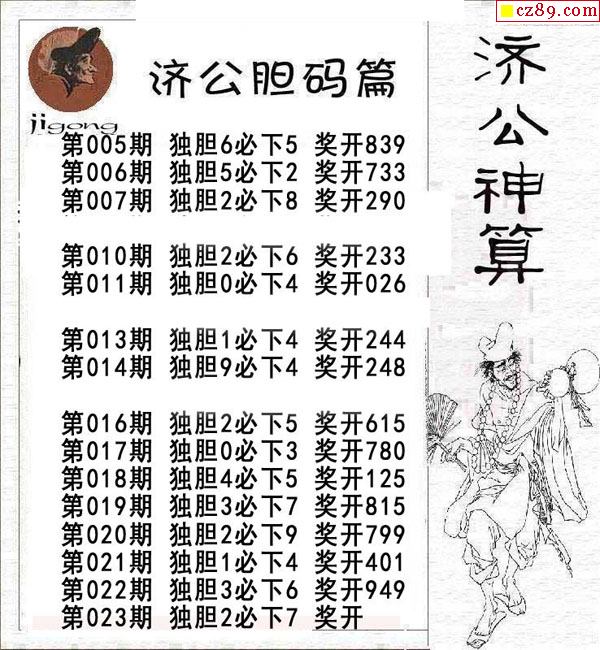 cz89.com
济公胆码篇
jigong
第005期 独胆6必下5 奖开839
第006期 独胆5必下2 奖开733
第007期 独胆2必下8 奖开290
第010期 独胆2必下6 奖开233
第011期 独胆0必下4 奖开026
第013期 独胆1必下4 奖开244
第014期 独胆9必下4 奖开248
第016期 独胆2必下5 奖开615
第017期 独胆0必下3 奖开780
第018期 独胆4必下5 奖开125
第019期 独胆3必下7 奖开815
第020期 独胆2必下9 奖开799
第021期 独胆1必下4 奖开401
第022期 独胆3必下6 奖开949
第023期 独胆2必下7 奖开
济公神算